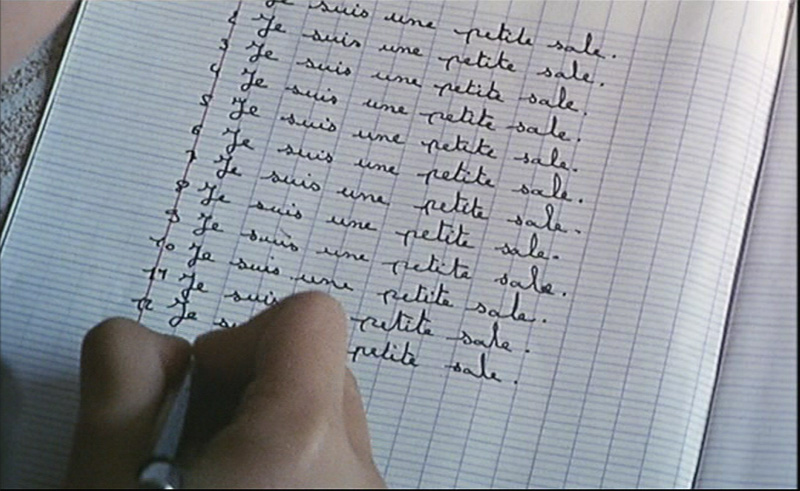 Je suis une petite sale.
2 Je suis une petite sale.
3 Je suis une petite sale.
4 Je suis une petite sale.
5 Je suis une petite sale.
6 Je suis une petite sale.
7 Je suis une petite sale.
8 Je suis une petite sale.
9 Je suis une petite sale.
10 Je suis une petite sale.
11 Je suis petite sale.
12 Je petite sale.